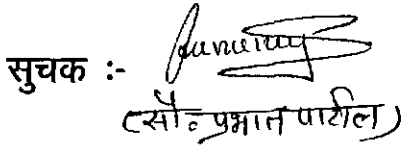 सुचक :-
(सौ. प्रभात पाटील)